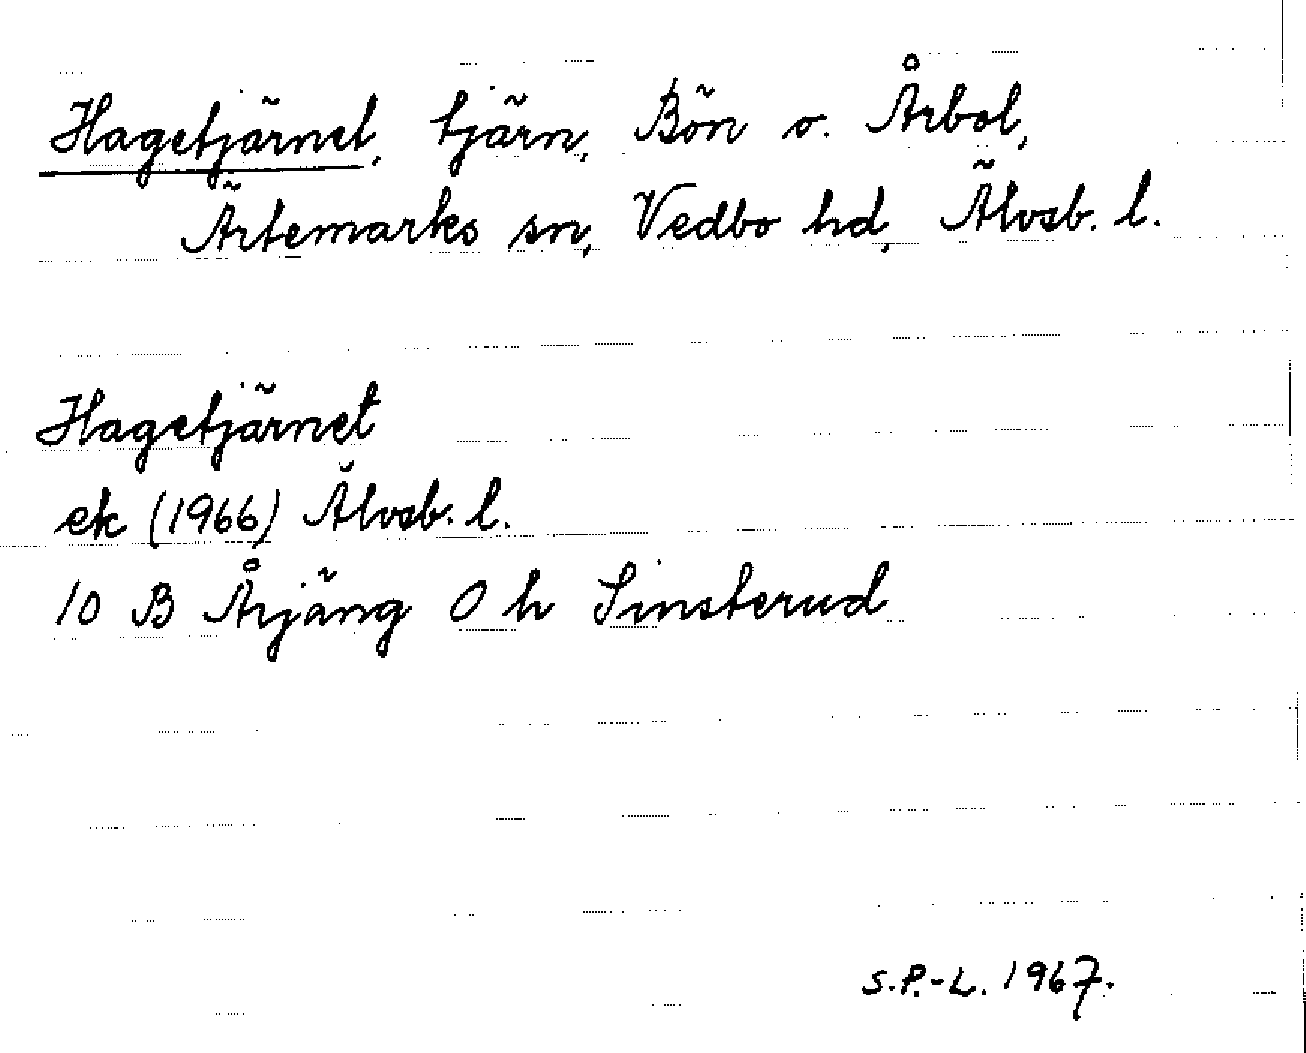 Hagetjärnet, tjärn, Bön o. Årbol,
Ärtemarks sn, Vedbo hd, Älvsb. l.
Hagetjärnet
ek (1966) Älvsb. l.
10 B Årjäng 0 h Sinsterud
S.P.-L. 1967.